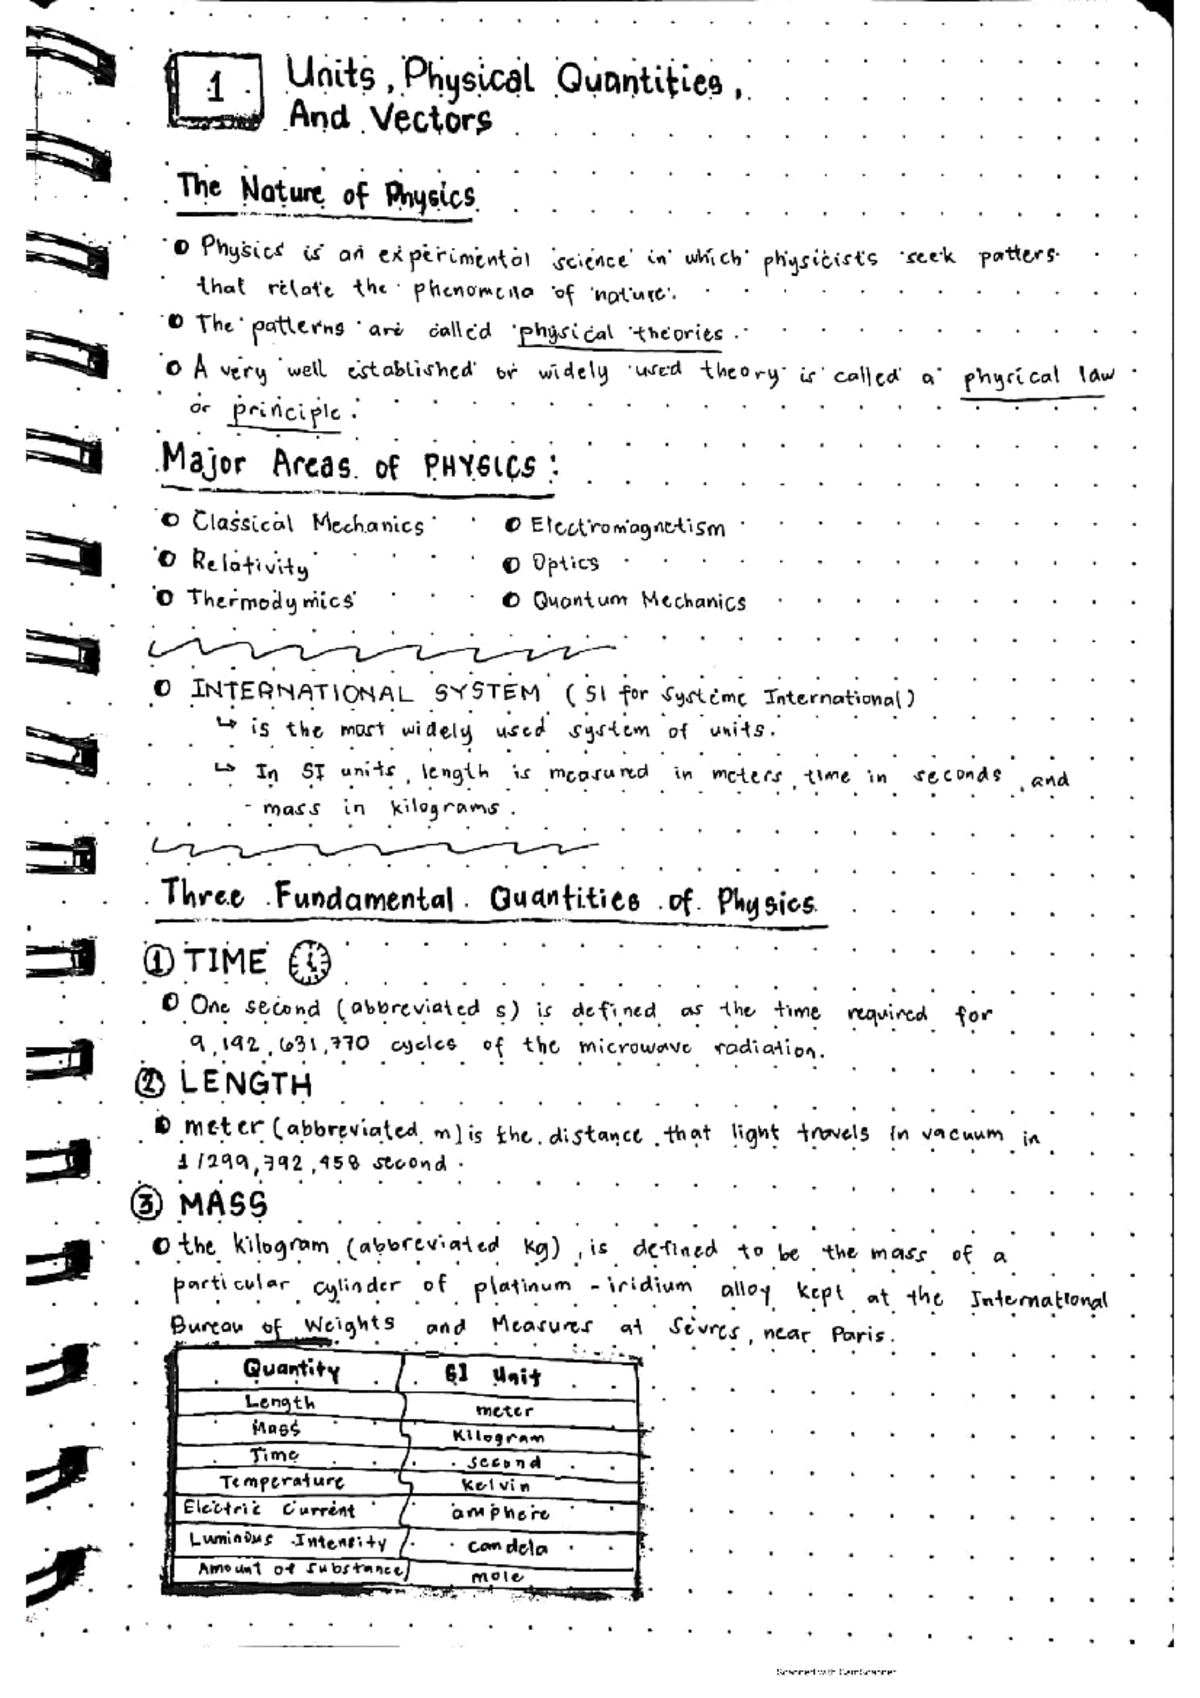 1 Units, Physical Quantities,
And Vectors
The Nature of Physics
Physics is an experimental science in which physicists seek patters
that relate the phenomena of nature.
The patterns are called physical theories.
A very well established or widely used theory is called a physical law
or principle.
Major Areas of PHYSICS:
Classical Mechanics
Electromagnetism
Relativity
Optics
Thermodymics
Quantum Mechanics
INTERNATIONAL SYSTEM (SI for Système International)
↳ is the most widely used system of units.
↳ In SI units, length is measured in meters, time in seconds, and
- mass in kilograms.
Three Fundamental Quantities of Physics
① TIME
One second (abbreviated s) is defined as the time required for
9,192,631,770 cycles of the microwave radiation.
② LENGTH
meter (abbreviated m) is the distance that light travels in vacuum in
1/299,792,458 second.
③ MASS
the kilogram (abbreviated kg), is defined to be the mass of a
particular cylinder of platinum - iridium alloy kept at the International
Bureau of Weights and Measures at Sèvres, near Paris.
Quantity SI Unit
Length meter
Mass Kilogram
Time second
Temperature kelvin
Electric Current amphere
Luminous Intensity candela
Amount of Substance mole
Scanned with CamScanner